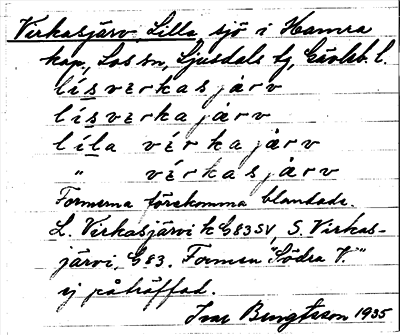 Virkasjärv, Lilla, sjö i Hamra
kap., Los sn, Ljusdals tg, Gävleb. l.
lísverkasjärv
lísverkajärv
líla vérkajärv
" vérkasjärv
Formerna förekomma blandade.
L. Virkasjärvi k G83SV S. Virkas-
järvi, G83. Formen "Södra V."
ej påträffad.
Ivar Bengtsson 1935